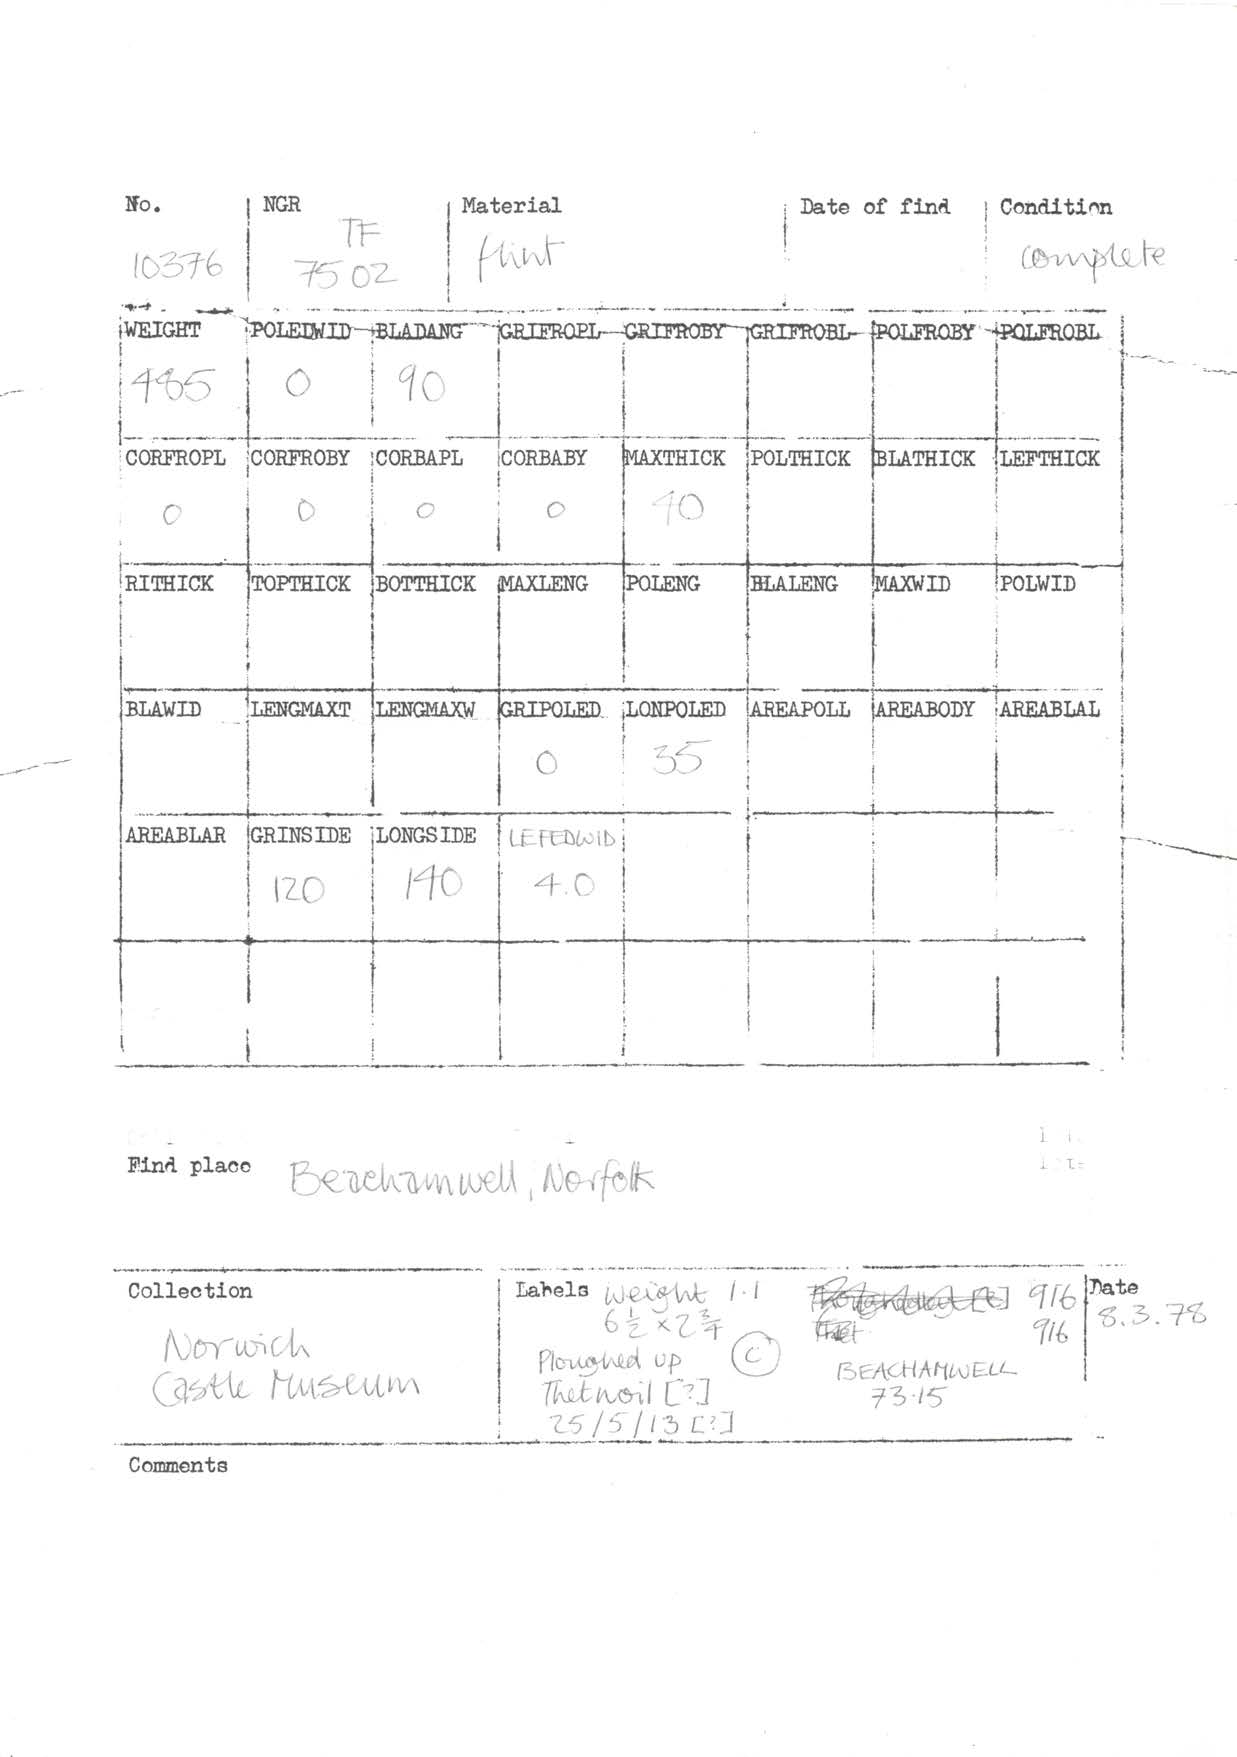 No. NGR Material Date of find Condition
TF
10376 7502 flint complete
WEIGHT POLEDWID BLADANG GRIFROPL GRIFROBY GRIFROBL POLFROBY POLFROBL
485 0 90
CORFROPL CORFROBY CORBAPL CORBABY MAXTHICK POLTHICK BLATHICK LEFTHICK
0 0 0 0 40
RITHICK TOPTHICK BOTTHICK MAXLENG POLENG BLALENG MAXWID POLWID
BLAWID LENGMAXT LENGMAXW GRIPOLED LONPOLED AREAPOLL AREABODY AREABLAL
0 35
AREABLAR GRINSIDE LONGSIDE LEFEDWID
120 140 4.0
Find place Beachamwell, Norfolk
Collection
Norwich
Castle Museum
Labels Weight 1.1
6½ x 2¾
Ploughed up
Thetnoil [?]
25/5/13 [?]
C
916
916
BEACHAMWELL
73.15
Date
8.3.78
Comments